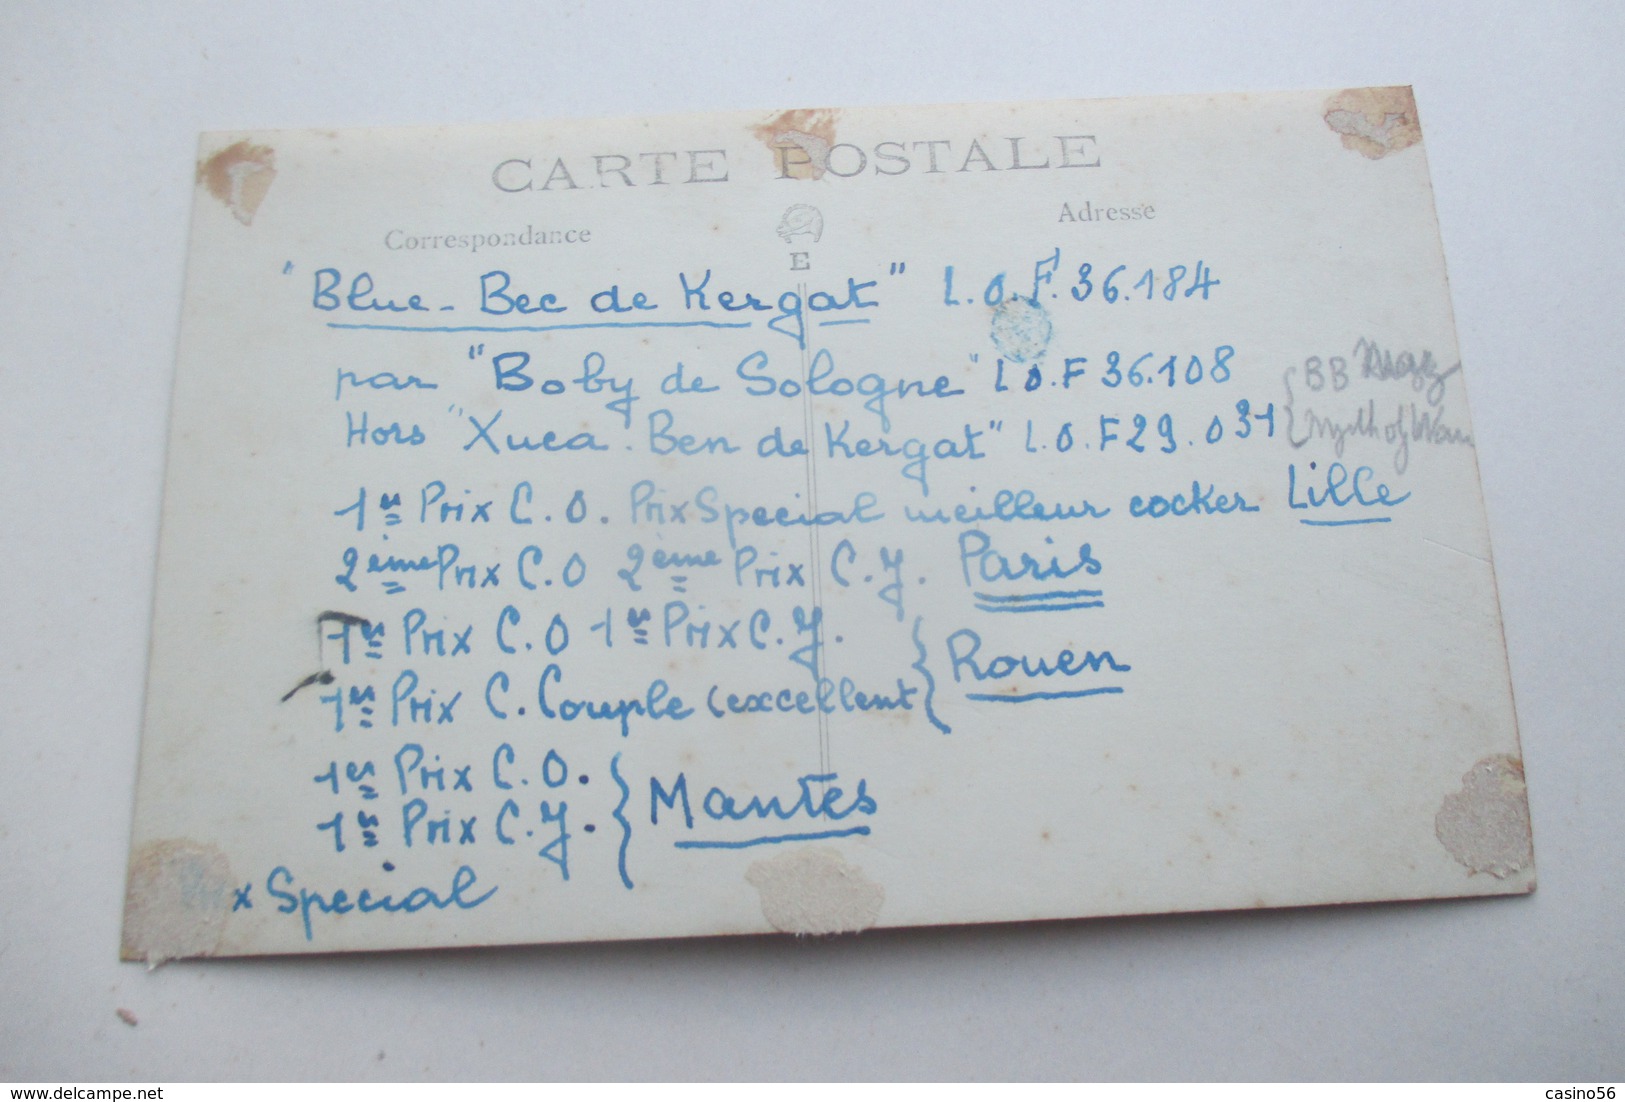 CARTE POSTALE
Correspondance
Adresse
E
"Blue-Bec de Kergat" L.O.F. 36.184
par "Boby de Sologne" L.O.F 36.108 { BB
Hors "Xuca. Ben de Kergat" L.O.F 29.031 { of
1er Prix C.O. Prix Special meilleur cocker Lille
2ème Prix C.O 2ème Prix C.J. Paris
1er Prix C.O 1er Prix C.J.
1er Prix C. Couple (excellent } Rouen
1er Prix C.O.
1er Prix C.J. } Mantes
Prix Special
delcampe.net
casino56